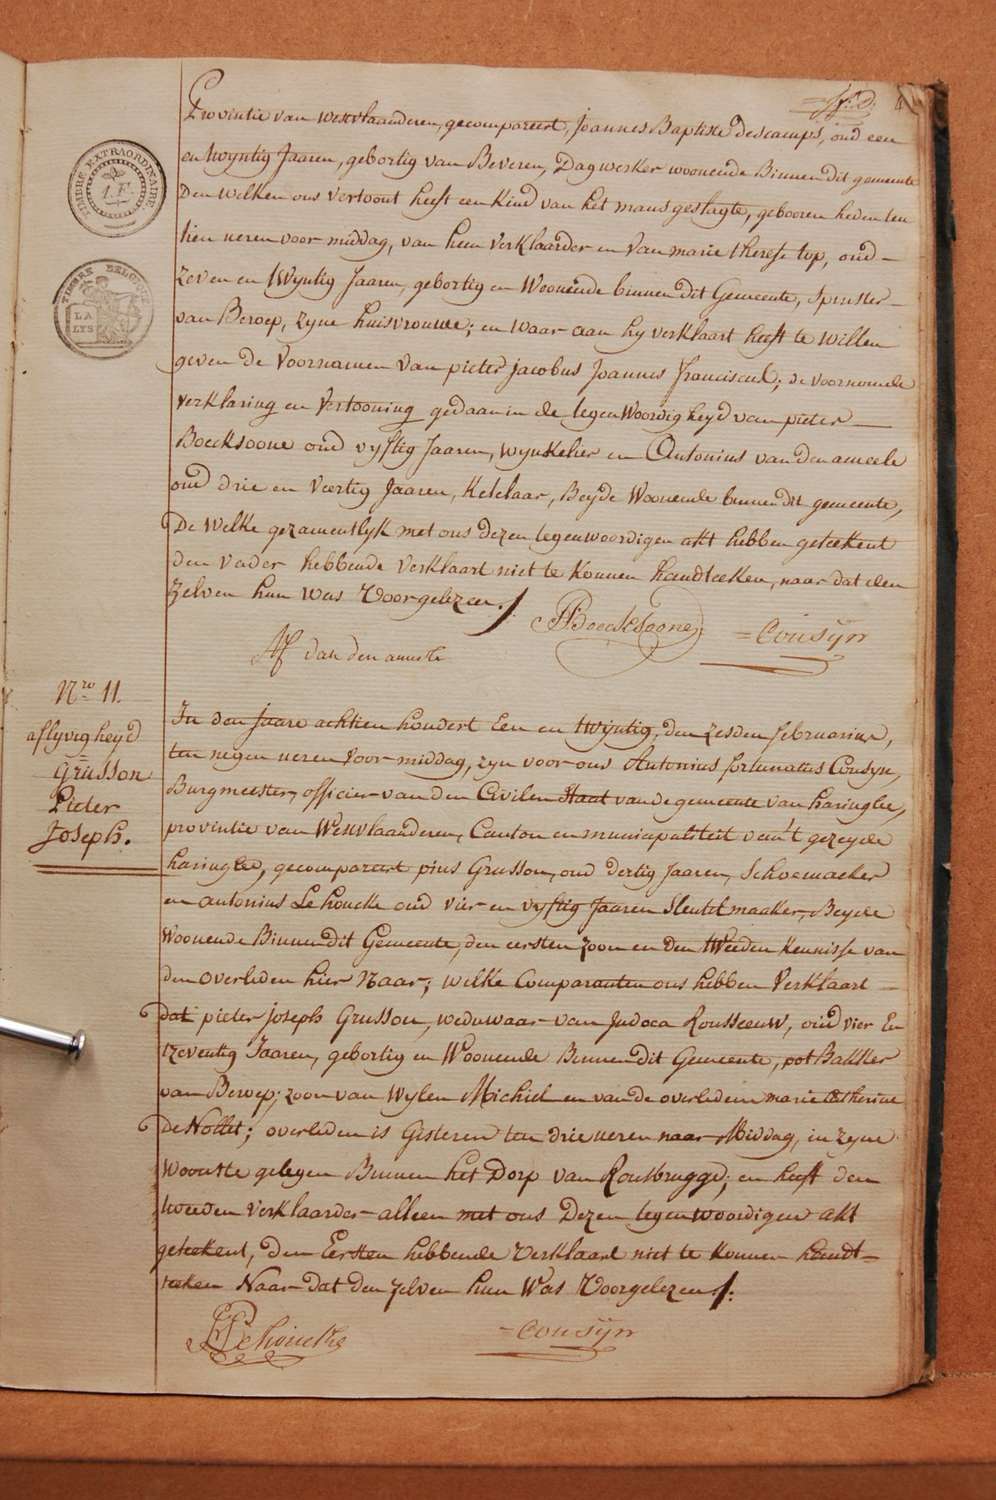 4
TIMBRE EXTRAORDINAIRE.
1.F.
TIMBRE BELGIQUE
LA LYS
Provintie van westvlaanderen, gecompareert, Joannes Baptiste descamps, oud een
en twyntig Jaaren, gebortig van Beveren, Dagwerker woonende Binnen dit gemeente
Den welken ons vertoont heeft een Kind van het mansgeslagte, gebooren heden ten
tien ueren voor middag, van hem verklaarder en van marie therese top, oud -
Zeven en twyntig Jaaren, gebortig en Woonende binnen dit Gemeente, Spinster -
van Beroep, zyne huisvrouwe; en waar aan hy verklaart heeft te willen
geven de voornamen van pieter jacobus Joannes franciscus; de voornomde
verklaring en vertooning gedaan in de tegenWoordigheyd van pieter -
Boecksoone oud vyftig Jaaren, wynkelier en Antonius van den ameele
oud drie en veertig Jaaren, Ketelaar, Beyde Woonende binnen dit gemeente,
De welke gezamentlyk met ons dezen tegenwoordigen akt hebben geteekent
den vader hebbende verklaart niet te konnen handteeken, naar dat den
Zelven hun was Voorgelezen./
PBoecksoone = Cousyn
AF van den ameele
Nro 11.
aflyvigheyd
Grusson
Pieter
Joseph.
In den Jaare achtien hondert Een en twyntig, den zesden februarius,
ten negen ueren voor middag, zyn voor ons Antonius fortunatus Cousyn,
Burgmeester, officier van den Civilen Staat van de gemeente van haringhe,
provintie van Westvlaanderen, Canton en municipaliteit van't gezeyde
haringhe, gecompareert pius Grusson, oud dertig Jaaren, Schoemaeker
en antonius Lehoucke oud vier en vyftig Jaaren Sleutelmaaker, Beyde
Woonende Binnen dit Gemeente, den eersten zoon en den tweeden Kennisse van
den overleden hier Naar; welke Comparanten ons hebben verklaart -
dat pieter Joseph Grusson, weduwaar van Judoca Rousseeuw, oud vier En
tzeventig Jaaren, gebortig en Woonende Binnen dit Gemeente, pot Bakker
van Beroep; zoon van wylen Michiel en van de overledene marie Catherine
De Nollet; overleden is Gisteren ten drie ueren naar Middag, in zyne
woonste gelegen Binnen het Dorp van Rousbrugge; en heeft den
tweeden verklaarder alleen met ons Dezen tegenwoordigen akt
geteekent, den Eersten hebbende verklaart niet te konnen handt-
teeken Naar dat den zelven hun Was Voorgelezen /:
Lehoucke = Cousyn